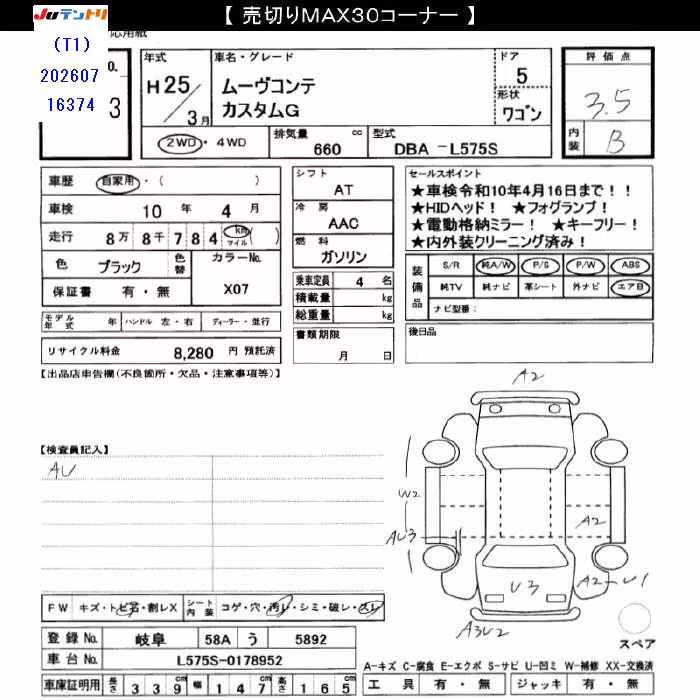 【 売切りMAX30コーナー 】
JUテントリ
(T1)
202607
16374
応用紙
o.
3
年式
H25/3月
車名・グレード
ムーヴコンテ
カスタムG
ドア
5
形状
ワゴン
評価点
3.5
内装
B
2WD・4WD
排気量
660 cc
型式
DBA-L575S
車歴 自家用・( )
車検 10 年 4 月
走行 8万 8千 7 8 4 km マイル ( )
色 ブラック 色替
カラーNo.
X07
保証書 有・無
シフト
AT
冷房
AAC
燃料
ガソリン
乗車定員 4 名
積載量 kg
総重量 kg
書類期限
月 日
セールスポイント
★車検令和10年4月16日まで!!
★HIDヘッド! ★フォグランプ!
★電動格納ミラー! ★キーフリー!
★内外装クリーニング済み!
装備品
S/R 純A/W P/S P/W ABS
純TV 純ナビ 革シート 外ナビ エアB
ナビ型番:
後日品
モデル年式 年 ハンドル 左・右 ディーラー・並行
リサイクル料金 8,280 円 預託済
【出品店申告欄(不良箇所・欠品・注意事項等)】
【検査員記入】
AU
A2
W2
AU3
A2
U3
A2-U1
A3U2
スペア
FW キズ・トビ石・割レX
シート内装 コゲ・穴・汚レ・シミ・破レ・スレ
登録No. 岐阜 58A う 5892
車台No. L575S-0178952
車庫証明用 長さ 3 3 9 幅 1 4 7 高さ 1 6 5
A-キズ C-腐食 E-エクボ S-サビ U-凹ミ W-補修 XX-交換済
工具 有・無 ジャッキ 有・無